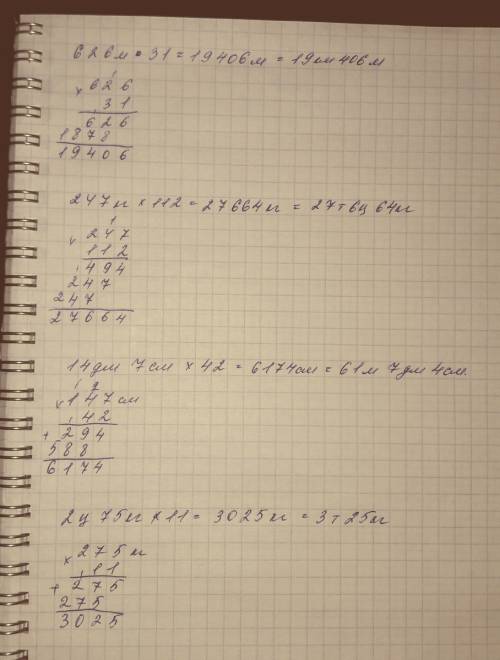 626м × 31 = 19406м = 19км 406м
1
× 626
31
626
1878
19406
247кг × 112 = 27664кг = 27т 6ц 64кг
1
× 247
112
494
247
247
27664
14дм 7см × 42 = 6174см = 61м 7дм 4см.
1 2
× 147см
42
+ 294
588
6174
2ц 75кг × 11 = 3025кг = 3т 25кг
× 275кг
11
+ 275
275
3025